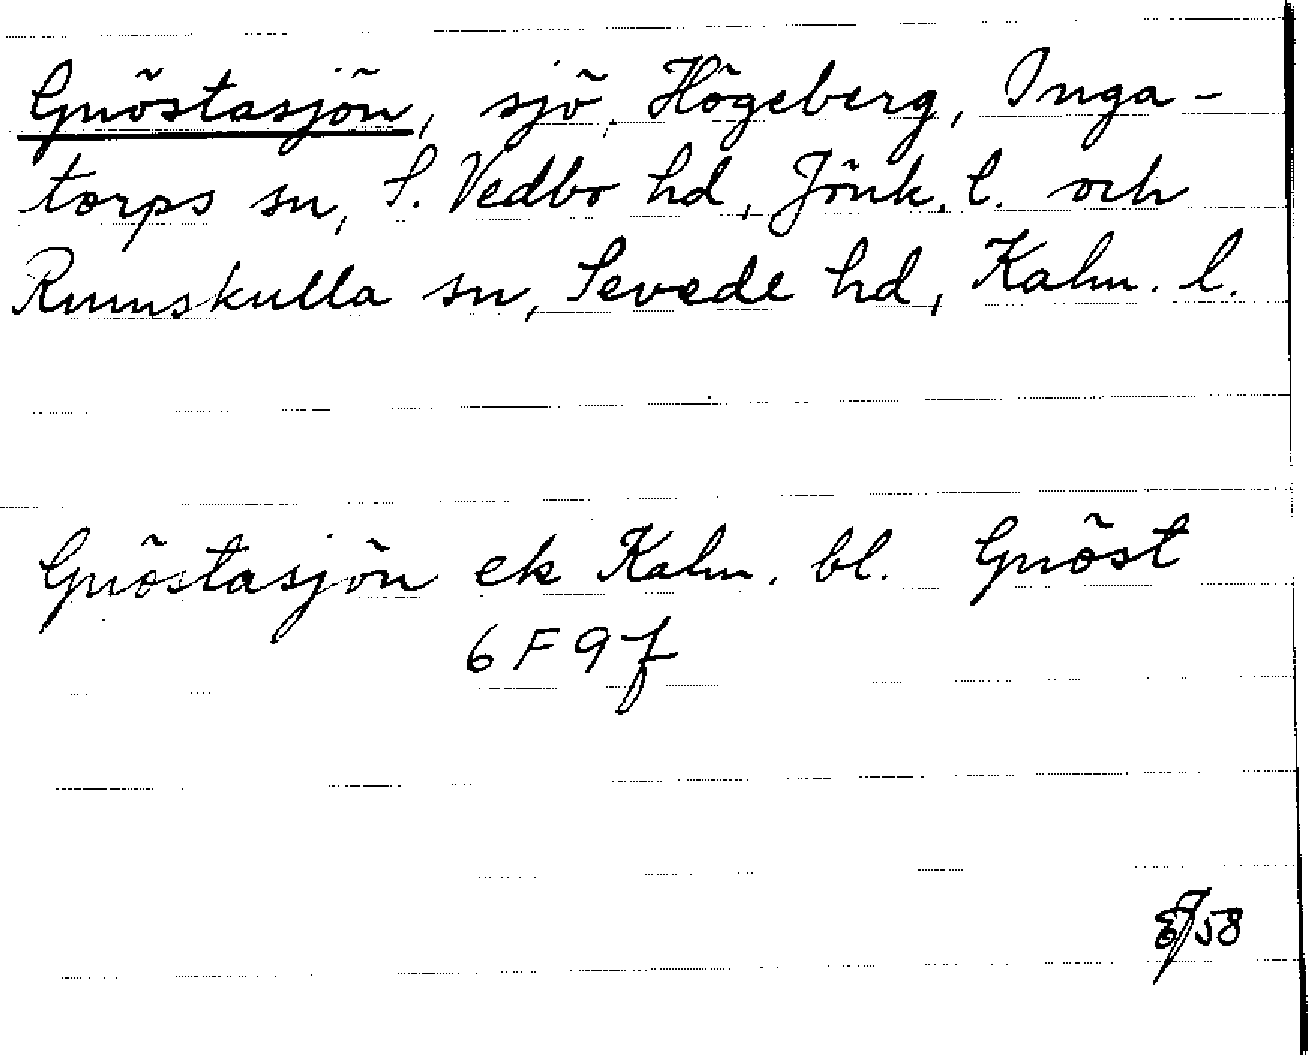 Gnöstasjön, sjö, Högeberg, Inga-
torps sn, S. Vedbo hd, Jönk. l. och
Rumskulla sn, Sevede hd, Kalm. l.
Gnöstasjön ek Kalm. bl. Gnöst
6 F 9 f
58